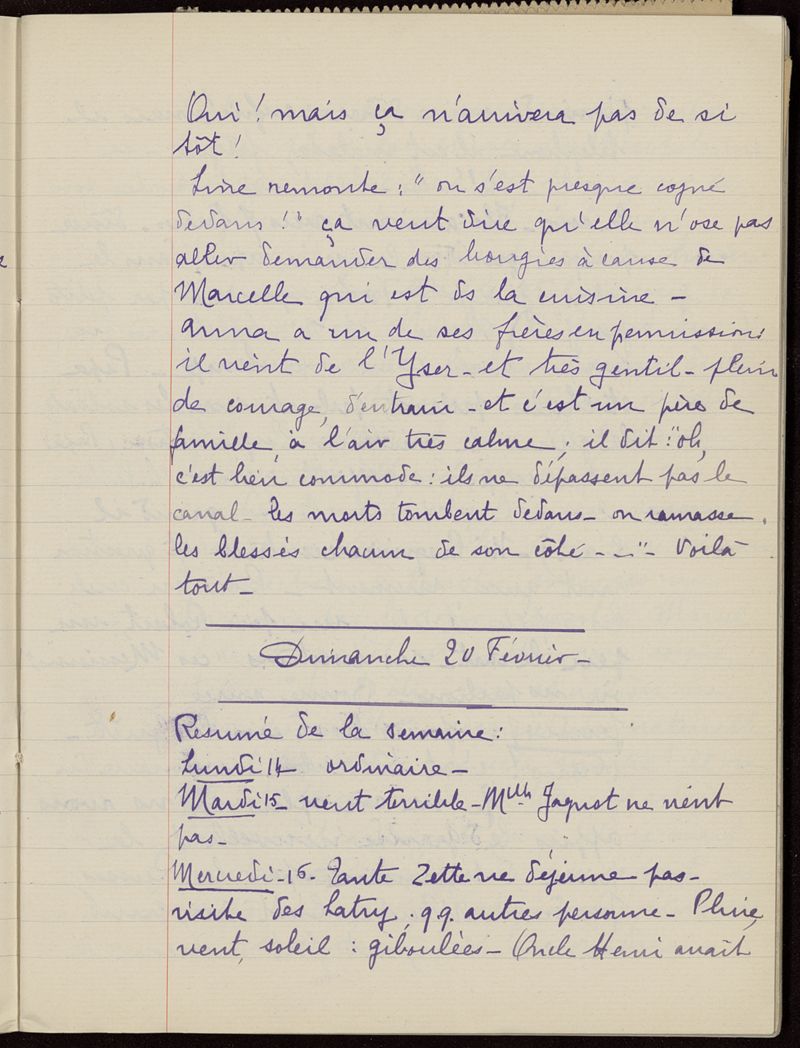 Oui ! mais ça n'arrivera pas de si
tôt !
Line remonte : "on s'est presque cogné
dedans !" ça veut dire qu'elle n'ose pas
aller demander des bougies à cause de
Marcelle qui est ds la cuisine -
Anna a un de ses frères en permission :
il vient de l'Yser - et très gentil - plein
de courage, d'entrain - et c'est un père de
famille, a l'air très calme ; il dit : "oh,
c'est bien commode : ils ne dépassent pas le
canal - les morts tombent dedans - on ramasse
les blessés chacun de son côté - - " - Voilà
tout -
Dimanche 20 Février -
Resumé de la semaine :
Lundi 14 ordinaire -
Mardi 15 - vent terrible - Melle Jaquot ne vient
pas -
Mercredi - 16 - Tante Zette ne déjeune pas -
visite des Latry ; qq. autres personne - Pluie,
vent, soleil : giboulées - Oncle Henri avait